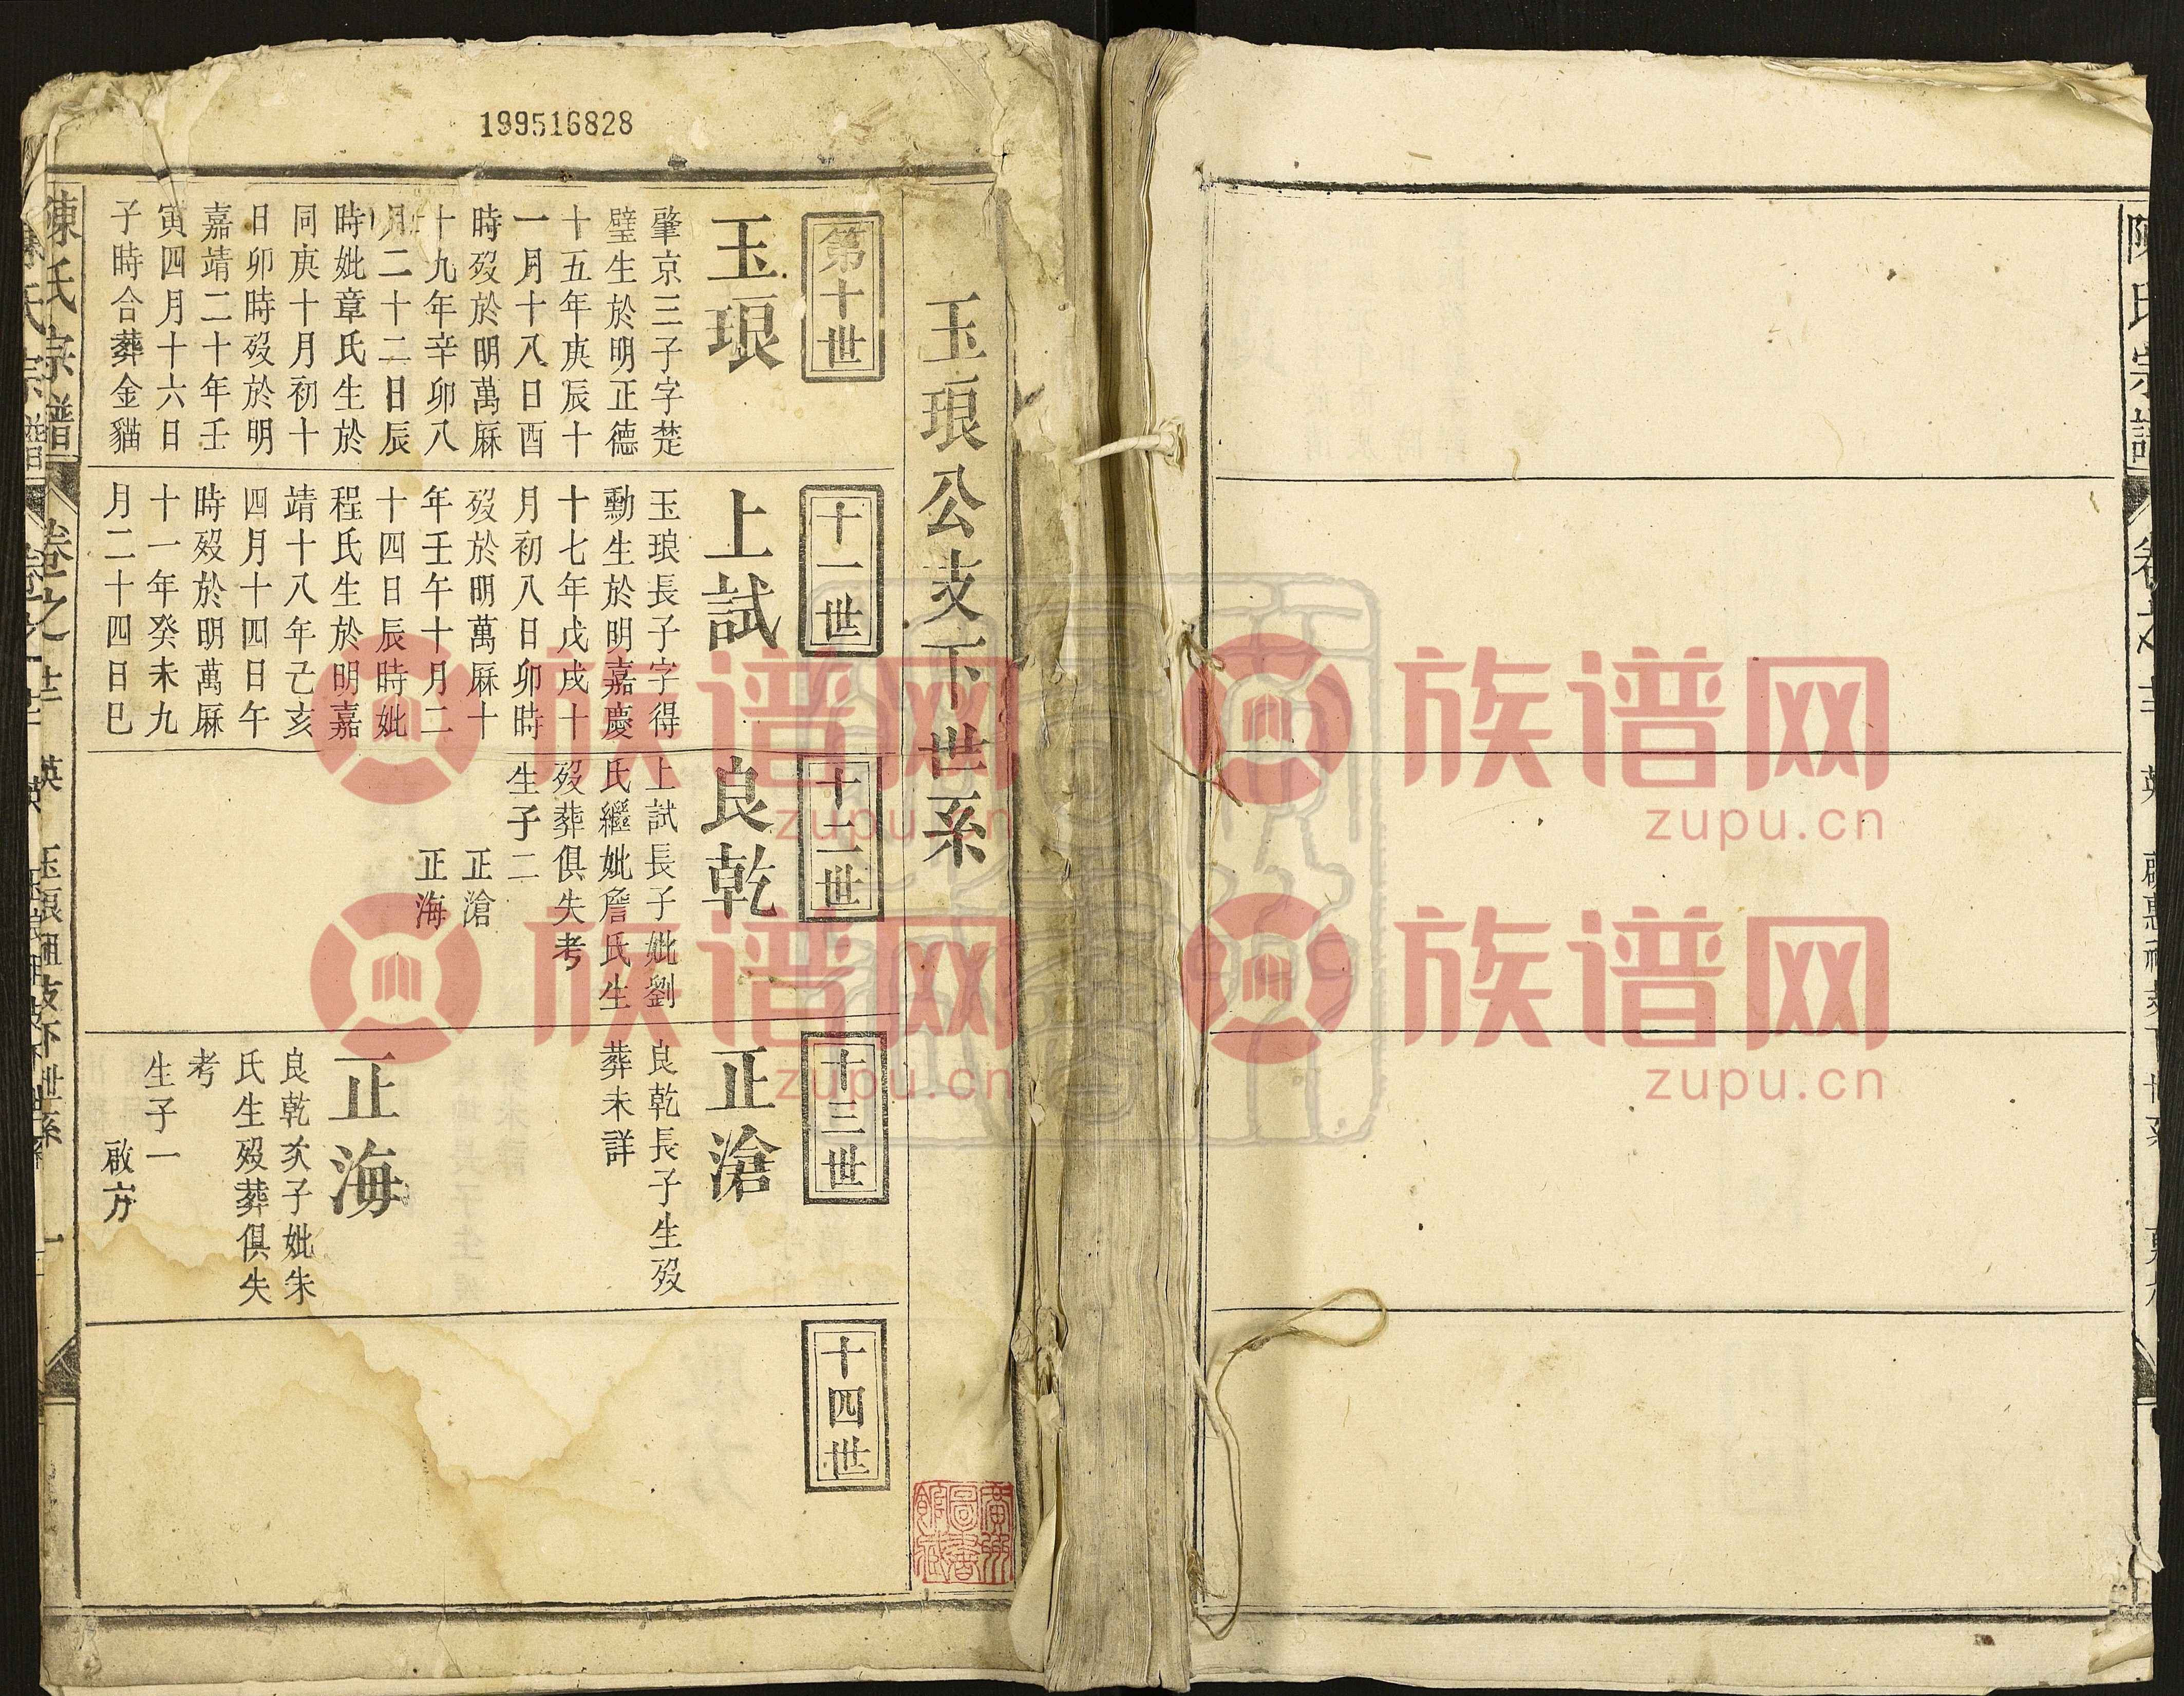 199516828
玉琅公支下世系
第十世
玉琅
肇京三子字楚
璧生於明正德
十五年庚辰十
一月十八日酉
時歿於明萬厤
十九年辛卯八
月二十二日辰
時妣章氏生於
同庚十月初十
日卯時歿於明
嘉靖二十年壬
寅四月十六日
子時合葬金貓
十一世
上試
玉琅長子字得
勳生於明嘉慶
十七年戊戌十
月初八日卯時
歿於明萬厤十
年壬午十月二
十四日辰時妣
程氏生於明嘉
靖十八年己亥
四月十四日午
時歿於明萬厤
十一年癸未九
月二十四日巳
十二世
良乾
上試長子妣劉
氏繼妣詹氏生
歿葬俱失考
生子二
正滄
正海
十三世
正滄
良乾長子生歿
葬未詳
正海
良乾次子妣朱
氏生歿葬俱失
考
生子一
啟方
十四世
陳氏宗譜 卷之 英 玉琅祖支下世系 一
陳氏宗譜
廣州圖書館藏
族谱网
zupu.cn
族谱网
zupu.cn
族谱网
zupu.cn
族谱网
zupu.cn